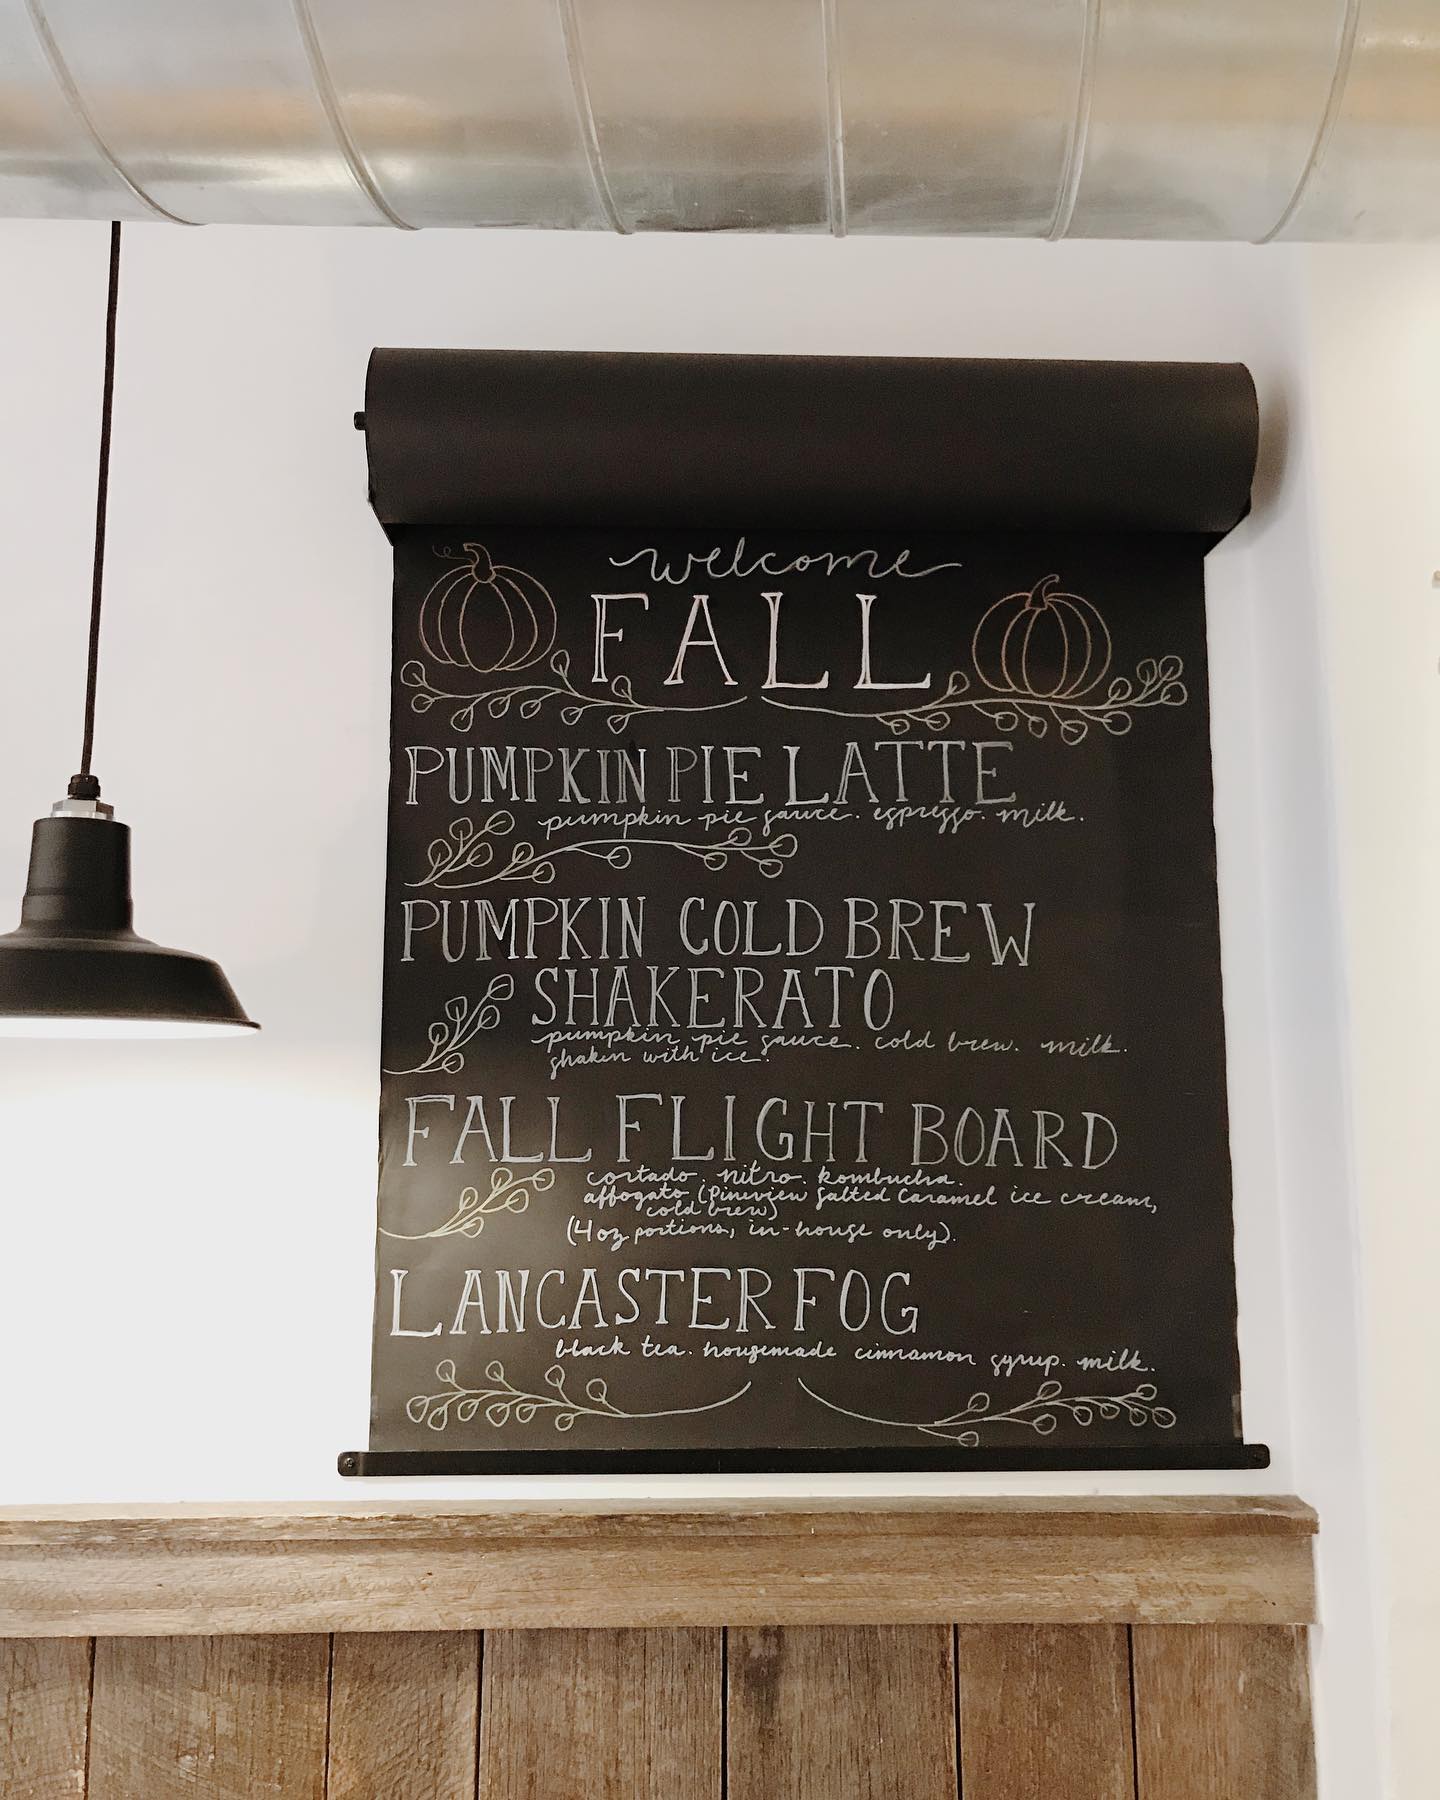 welcome
FALL
PUMPKIN PIE LATTE
pumpkin pie sauce. espresso. milk.
PUMPKIN COLD BREW
SHAKERATO
pumpkin pie sauce. cold brew. milk.
shaken with ice.
FALL FLIGHT BOARD
cortado. nitro. kombucha.
affogato (Pineview Salted Caramel ice cream,
cold brew)
(4oz portions, in-house only).
LANCASTER FOG
black tea. housemade cinnamon syrup. milk.